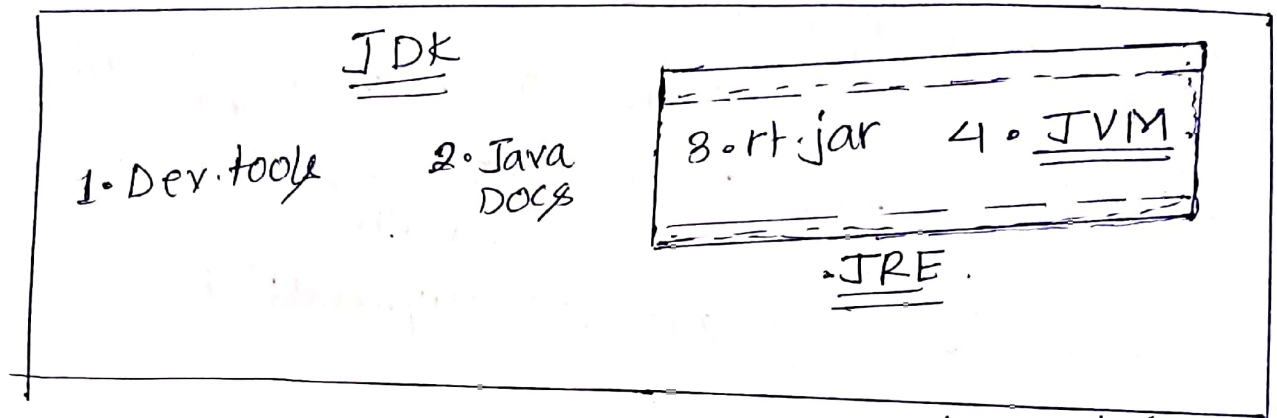 JDK
1. Dev. tools
2. Java
DOCS
3. rt.jar 4. JVM
JRE